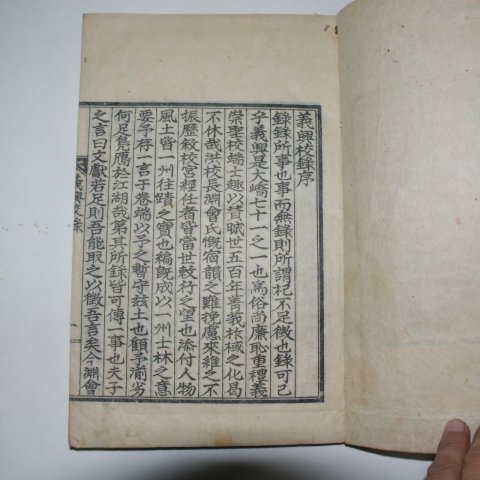 義興校錄序
錄錄所事也事而無錄則所謂杞不足徵也錄可已
乎義興是大嶠七十一之一也爲俗尚廉恥重禮義
崇聖校端士趣以贊 世五百年善義柞棫之化曷
不休哉洪校長淵會氏慨 韻之難挽慮來雒之不
振歷敍校宮經任者皆當世敦行之望也添付人物
風土皆一州往蹟之寶也編旣成以一州士林之意
要予存一言于卷端以予之暫守玆土也顧予渝劣
何足鳧鴈於江湖哉第其所錄皆可傳一事也夫子
之言曰文獻若足則吾能取之以徵吾言矣今淵會
義興校錄
一